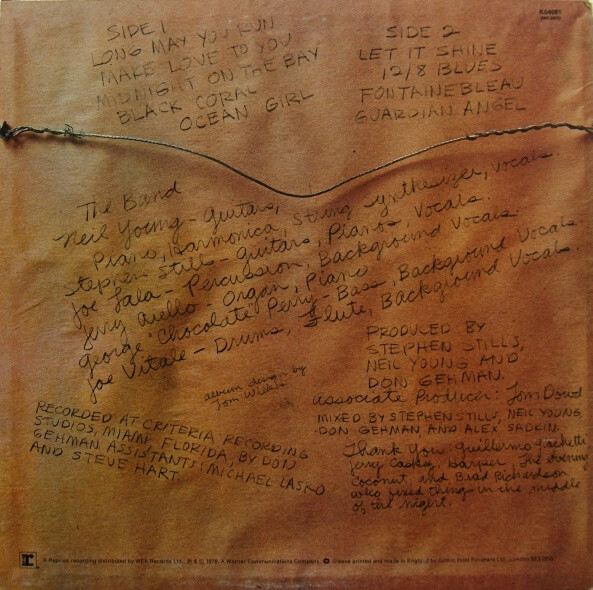 K54081
SIDE 1
LONG MAY YOU RUN
MAKE LOVE TO YOU
MIDNIGHT ON THE BAY
BLACK CORAL
OCEAN GIRL
SIDE 2
LET IT SHINE
12/8 BLUES
FONTAINEBLEAU
GUARDIAN ANGEL
The Band
Neil Young - Guitars,
Piano, Harmonica, String Synthesizer, Vocals.
Stephen Stills - Guitars, Piano, Vocals.
Joe Lala - Percussion, Background Vocals
Jerry Aiello - Organ, Piano
George "Chocolate" Perry - Bass, Background Vocals.
Joe Vitale - Drums, Flute, Background Vocals.
album design by
Tom Wilkes
PRODUCED BY
STEPHEN STILLS,
NEIL YOUNG AND
DON GEHMAN.
Associate Producer: Tom Dowd
MIXED BY STEPHEN STILLS, NEIL YOUNG,
DON GEHMAN AND ALEX SADKIN.
RECORDED AT CRITERIA RECORDING
STUDIOS, MIAMI FLORIDA, BY DON
GEHMAN ASSISTANTS: MICHAEL LASKO
AND STEVE HART.
Thank You: Guillermo Giachetti
Jerry Harper, The evening
Coconut, and Brad Richardson
who fixed things in the middle
of the night.
r
A Reprise recording distributed by WEA Records Ltd., ℗ & © 1976, A Warner Communications Company. Sleeve printed and made in England by Ltd., London